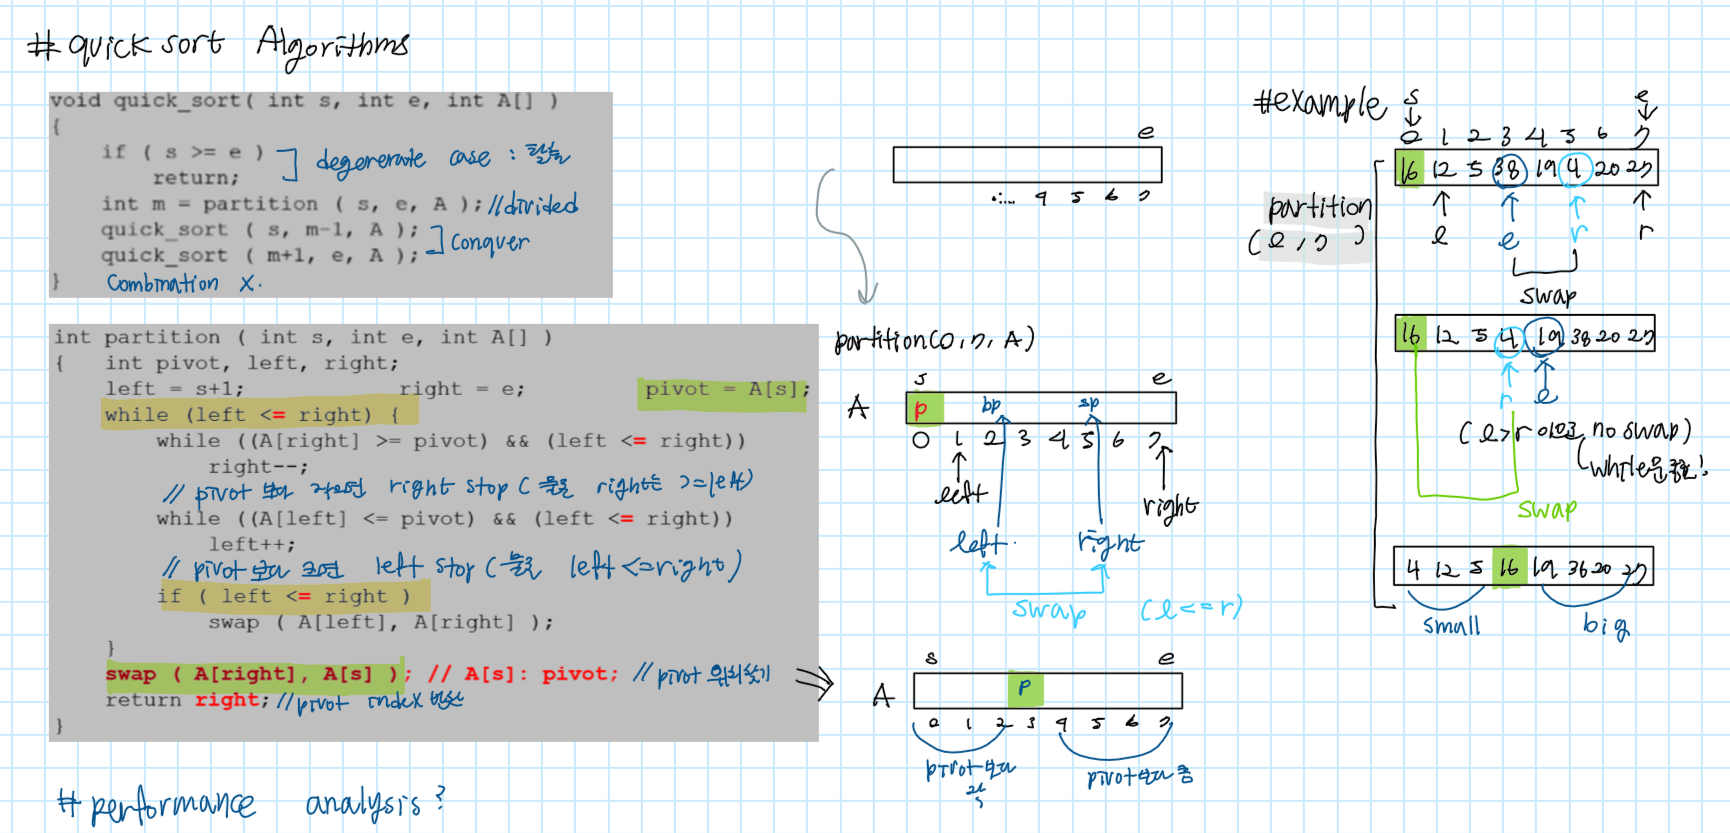 # quick sort Algorithms
void quick_sort( int s, int e, int A[] )
{
if ( s >= e )
return;
degenerate case : 탈출
int m = partition ( s, e, A ); //divided
quick_sort ( s, m-1, A );
quick_sort ( m+1, e, A );
conquer
}
Combination X.
int partition ( int s, int e, int A[] )
{ int pivot, left, right;
left = s+1; right = e; pivot = A[s];
while (left <= right) {
while ((A[right] >= pivot) && (left <= right))
right--;
// pivot 보다 작으면 right stop ( 물론 right는 >=left)
while ((A[left] <= pivot) && (left <= right))
left++;
// pivot 보다 크면 left stop ( 물론 left <=right)
if ( left <= right )
swap ( A[left], A[right] );
}
swap ( A[right], A[s] ); // A[s]: pivot; // pivot 위치찾기
return right; //pivot index 반환
}
# performance analysis?
e
4 5 6 7
partition(0, 7, A)
s e
A p bp sp
0 1 2 3 4 5 6 7
left right
left. right
swap (l<=r)
s e
A p
0 1 2 3 4 5 6 7
pivot보다 pivot보다 큼
#example s e
0 1 2 3 4 5 6 7
16 12 5 38 19 4 20 27
partition
(0, 7 )
l l r r
swap
16 12 5 4 19 38 20 27
r l
(l>r 이므로 no swap)
while문 종료!
swap
4 12 5 16 19 36 20 27
small big